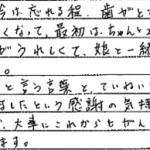 今は、忘れる程、歯がと
くなって、最初は、ちゃんと
がうれしくて、娘と一緒
。
と言う言葉と、ていねい
ましたという感謝の気持
、大事にこれからもがん
ます。